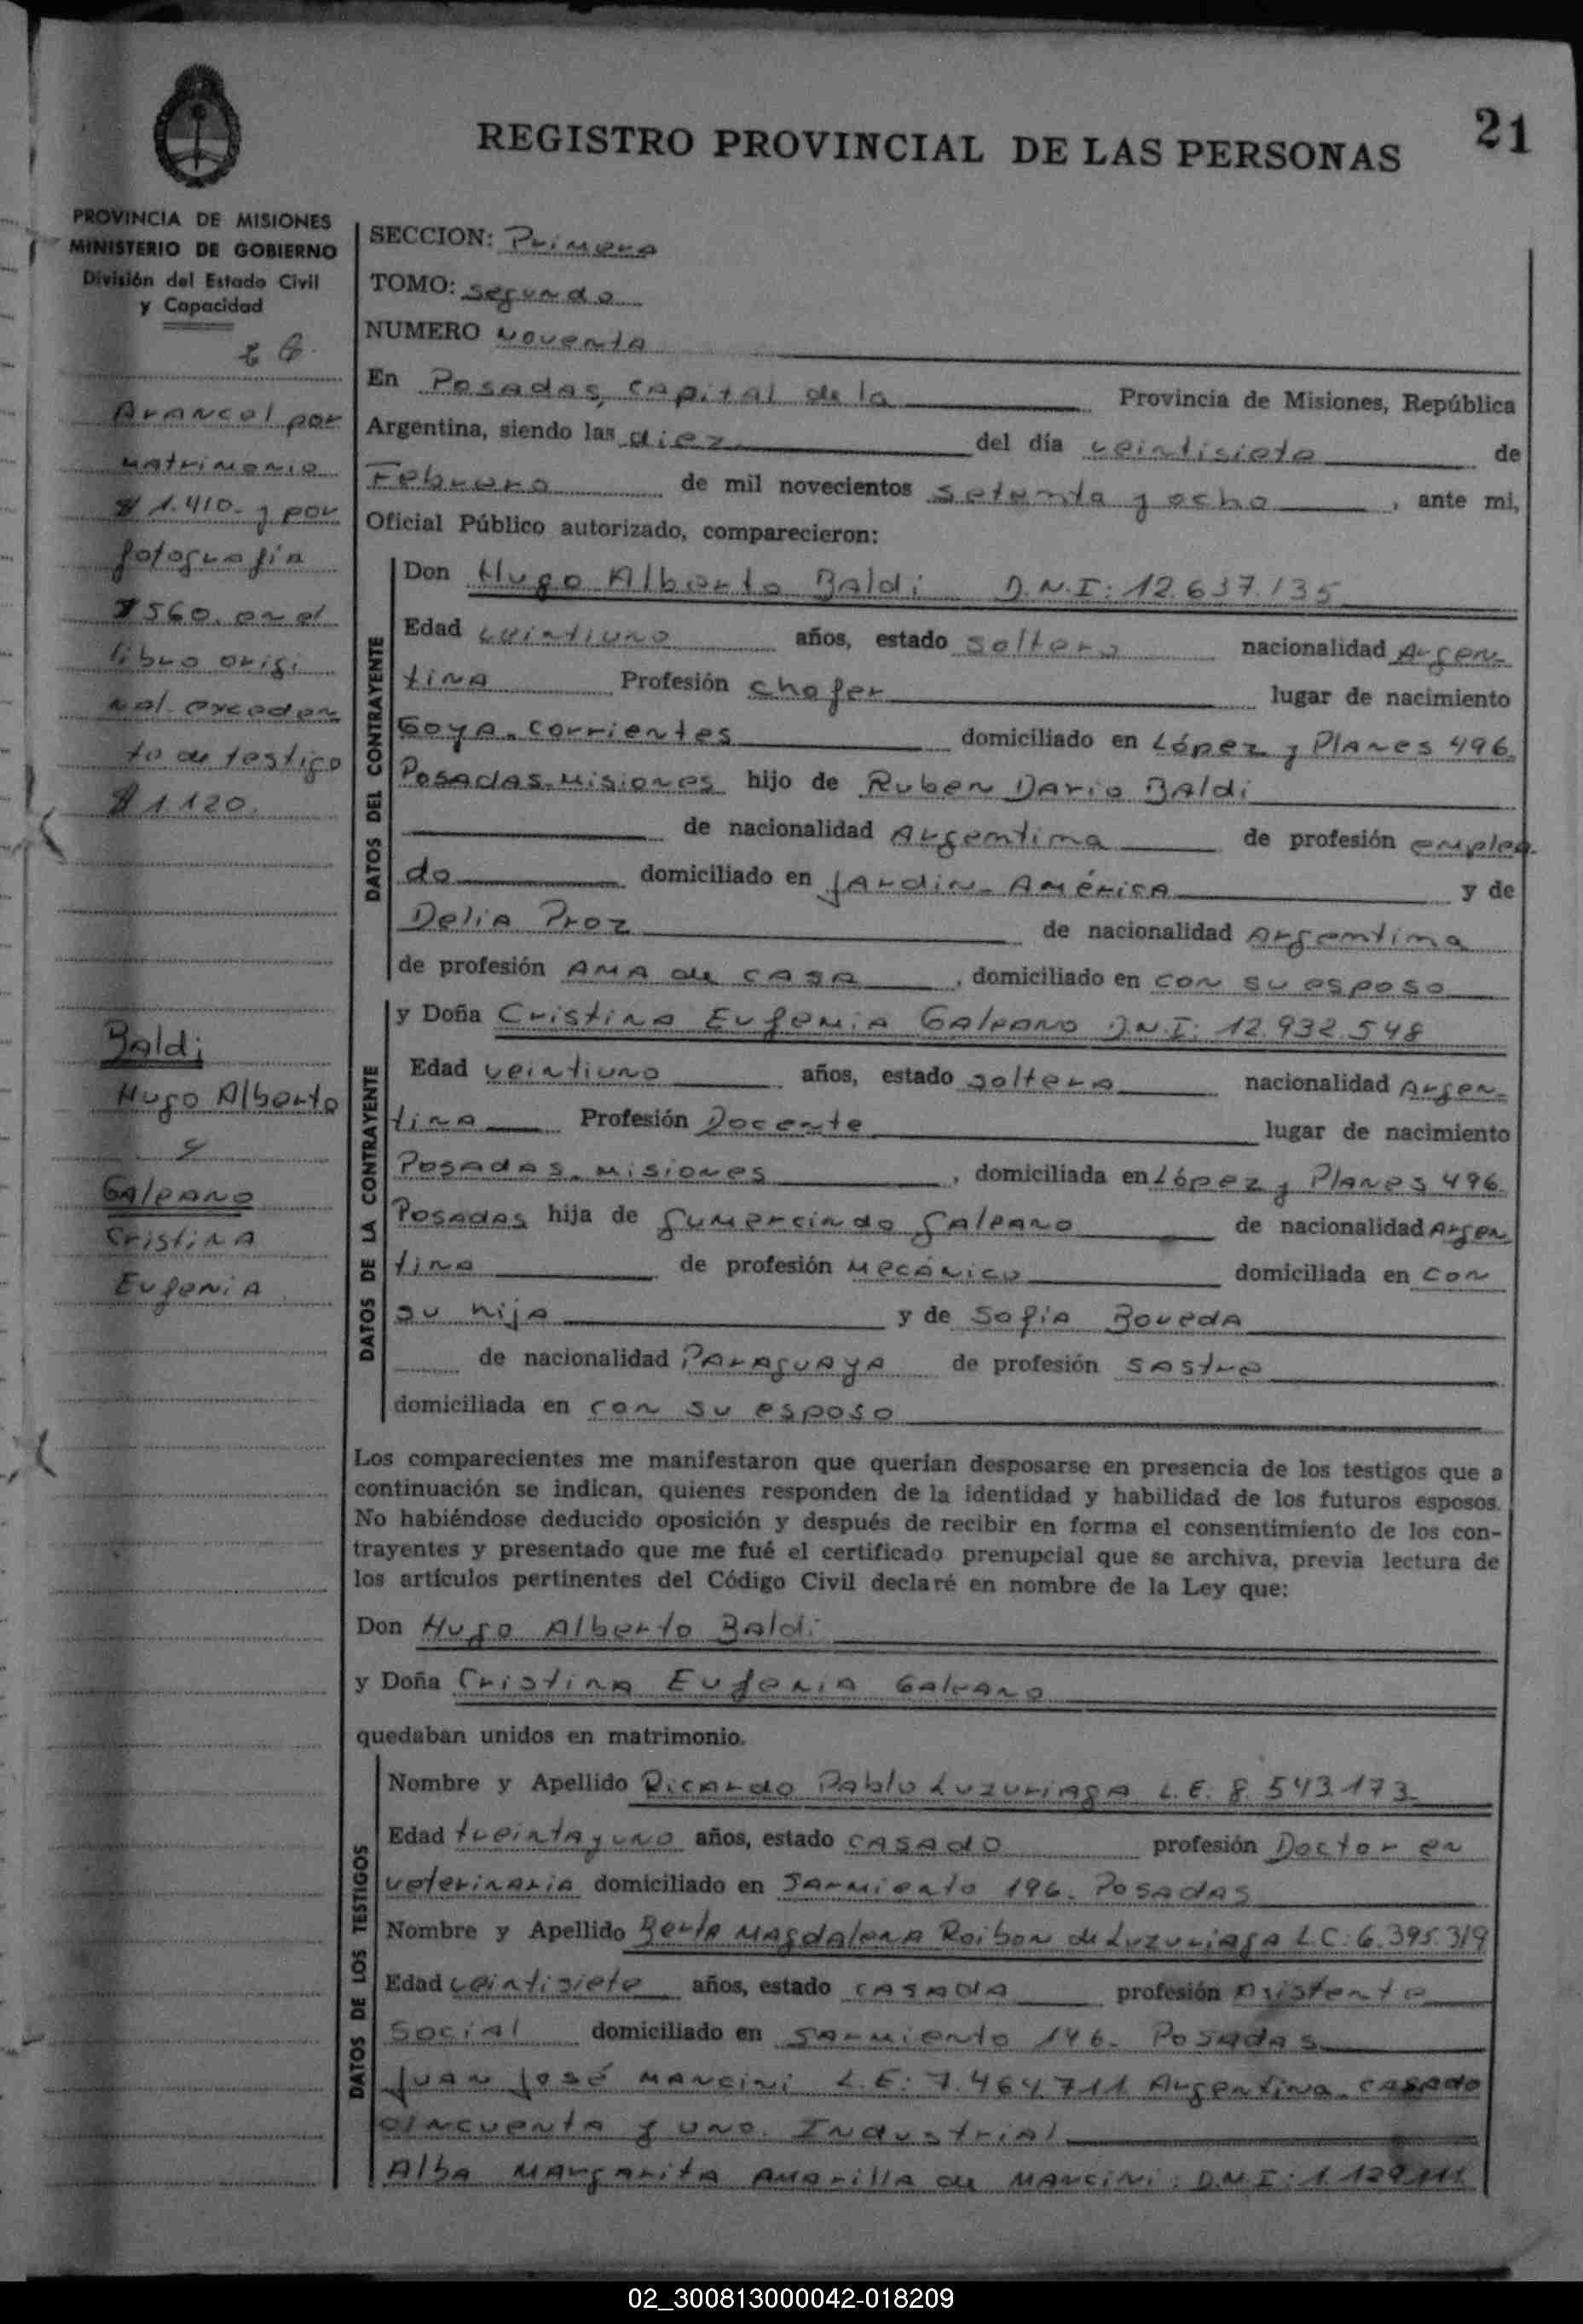 21
REGISTRO PROVINCIAL DE LAS PERSONAS
PROVINCIA DE MISIONES
MINISTERIO DE GOBIERNO
División del Estado Civil
y Capacidad
Arancel por
matrimonio
$ 1.410. y por
fotografía
$ 560. en el
libro origi
nal. exceden
te de testigo
$ 1.120.
Baldi
Hugo Alberto
y
Galeano
Cristina
Eugenia
SECCION: Primera
TOMO: segundo
NUMERO Noventa
En Posadas, capital de la Provincia de Misiones, República
Argentina, siendo las diez del día veintisiete de
Febrero de mil novecientos setenta y ocho, ante mi,
Oficial Público autorizado, comparecieron:
DATOS DEL CONTRAYENTE
Don Hugo Alberto Baldi D.N.I: 12.637.135
Edad veintiuno años, estado soltero nacionalidad Argen-
tina Profesión chofer lugar de nacimiento
Goya. Corrientes domiciliado en López y Planes 496.
Posadas. Misiones hijo de Ruben Dario Baldi
de nacionalidad Argentina de profesión emplea
do domiciliado en Jardin- América y de
Delia Proz de nacionalidad Argentina
de profesión Ama de casa, domiciliado en con su esposo
DATOS DE LA CONTRAYENTE
y Doña Cristina Eugenia Galeano D.N.I: 12.932.548
Edad veintiuno años, estado soltera nacionalidad Argen-
tina Profesión Docente lugar de nacimiento
Posadas. Misiones, domiciliada en López y Planes 496.
Posadas hija de Gumercindo Galeano de nacionalidad Argen
tina de profesión Mecánico domiciliada en con
su hija y de Sofía Boveda
de nacionalidad Paraguaya de profesión sastre
domiciliada en con su esposo
Los comparecientes me manifestaron que querían desposarse en presencia de los testigos que a
continuación se indican, quienes responden de la identidad y habilidad de los futuros esposos.
No habiéndose deducido oposición y después de recibir en forma el consentimiento de los con-
trayentes y presentado que me fué el certificado prenupcial que se archiva, previa lectura de
los artículos pertinentes del Código Civil declaré en nombre de la Ley que:
Don Hugo Alberto Baldi
y Doña Cristina Eugenia Galeano
quedaban unidos en matrimonio.
DATOS DE LOS TESTIGOS
Nombre y Apellido Ricardo Pablo Luzuriaga L.E: 8.543.173
Edad treinta y uno años, estado casado profesión Doctor en
veterinaria domiciliado en Sarmiento 196. Posadas
Nombre y Apellido Berta Magdalena Roibon de Luzuriaga L.C: 6.395.319
Edad veintisiete años, estado casada profesión Asistente
Social domiciliado en Sarmiento 146. Posadas
Juan José Mancini L.E: 7.464.711 Argentina. casado
cincuenta y uno. Industrial
Alba Margarita Amarilla de Mancini: D.N.I:
02_300813000042-018209